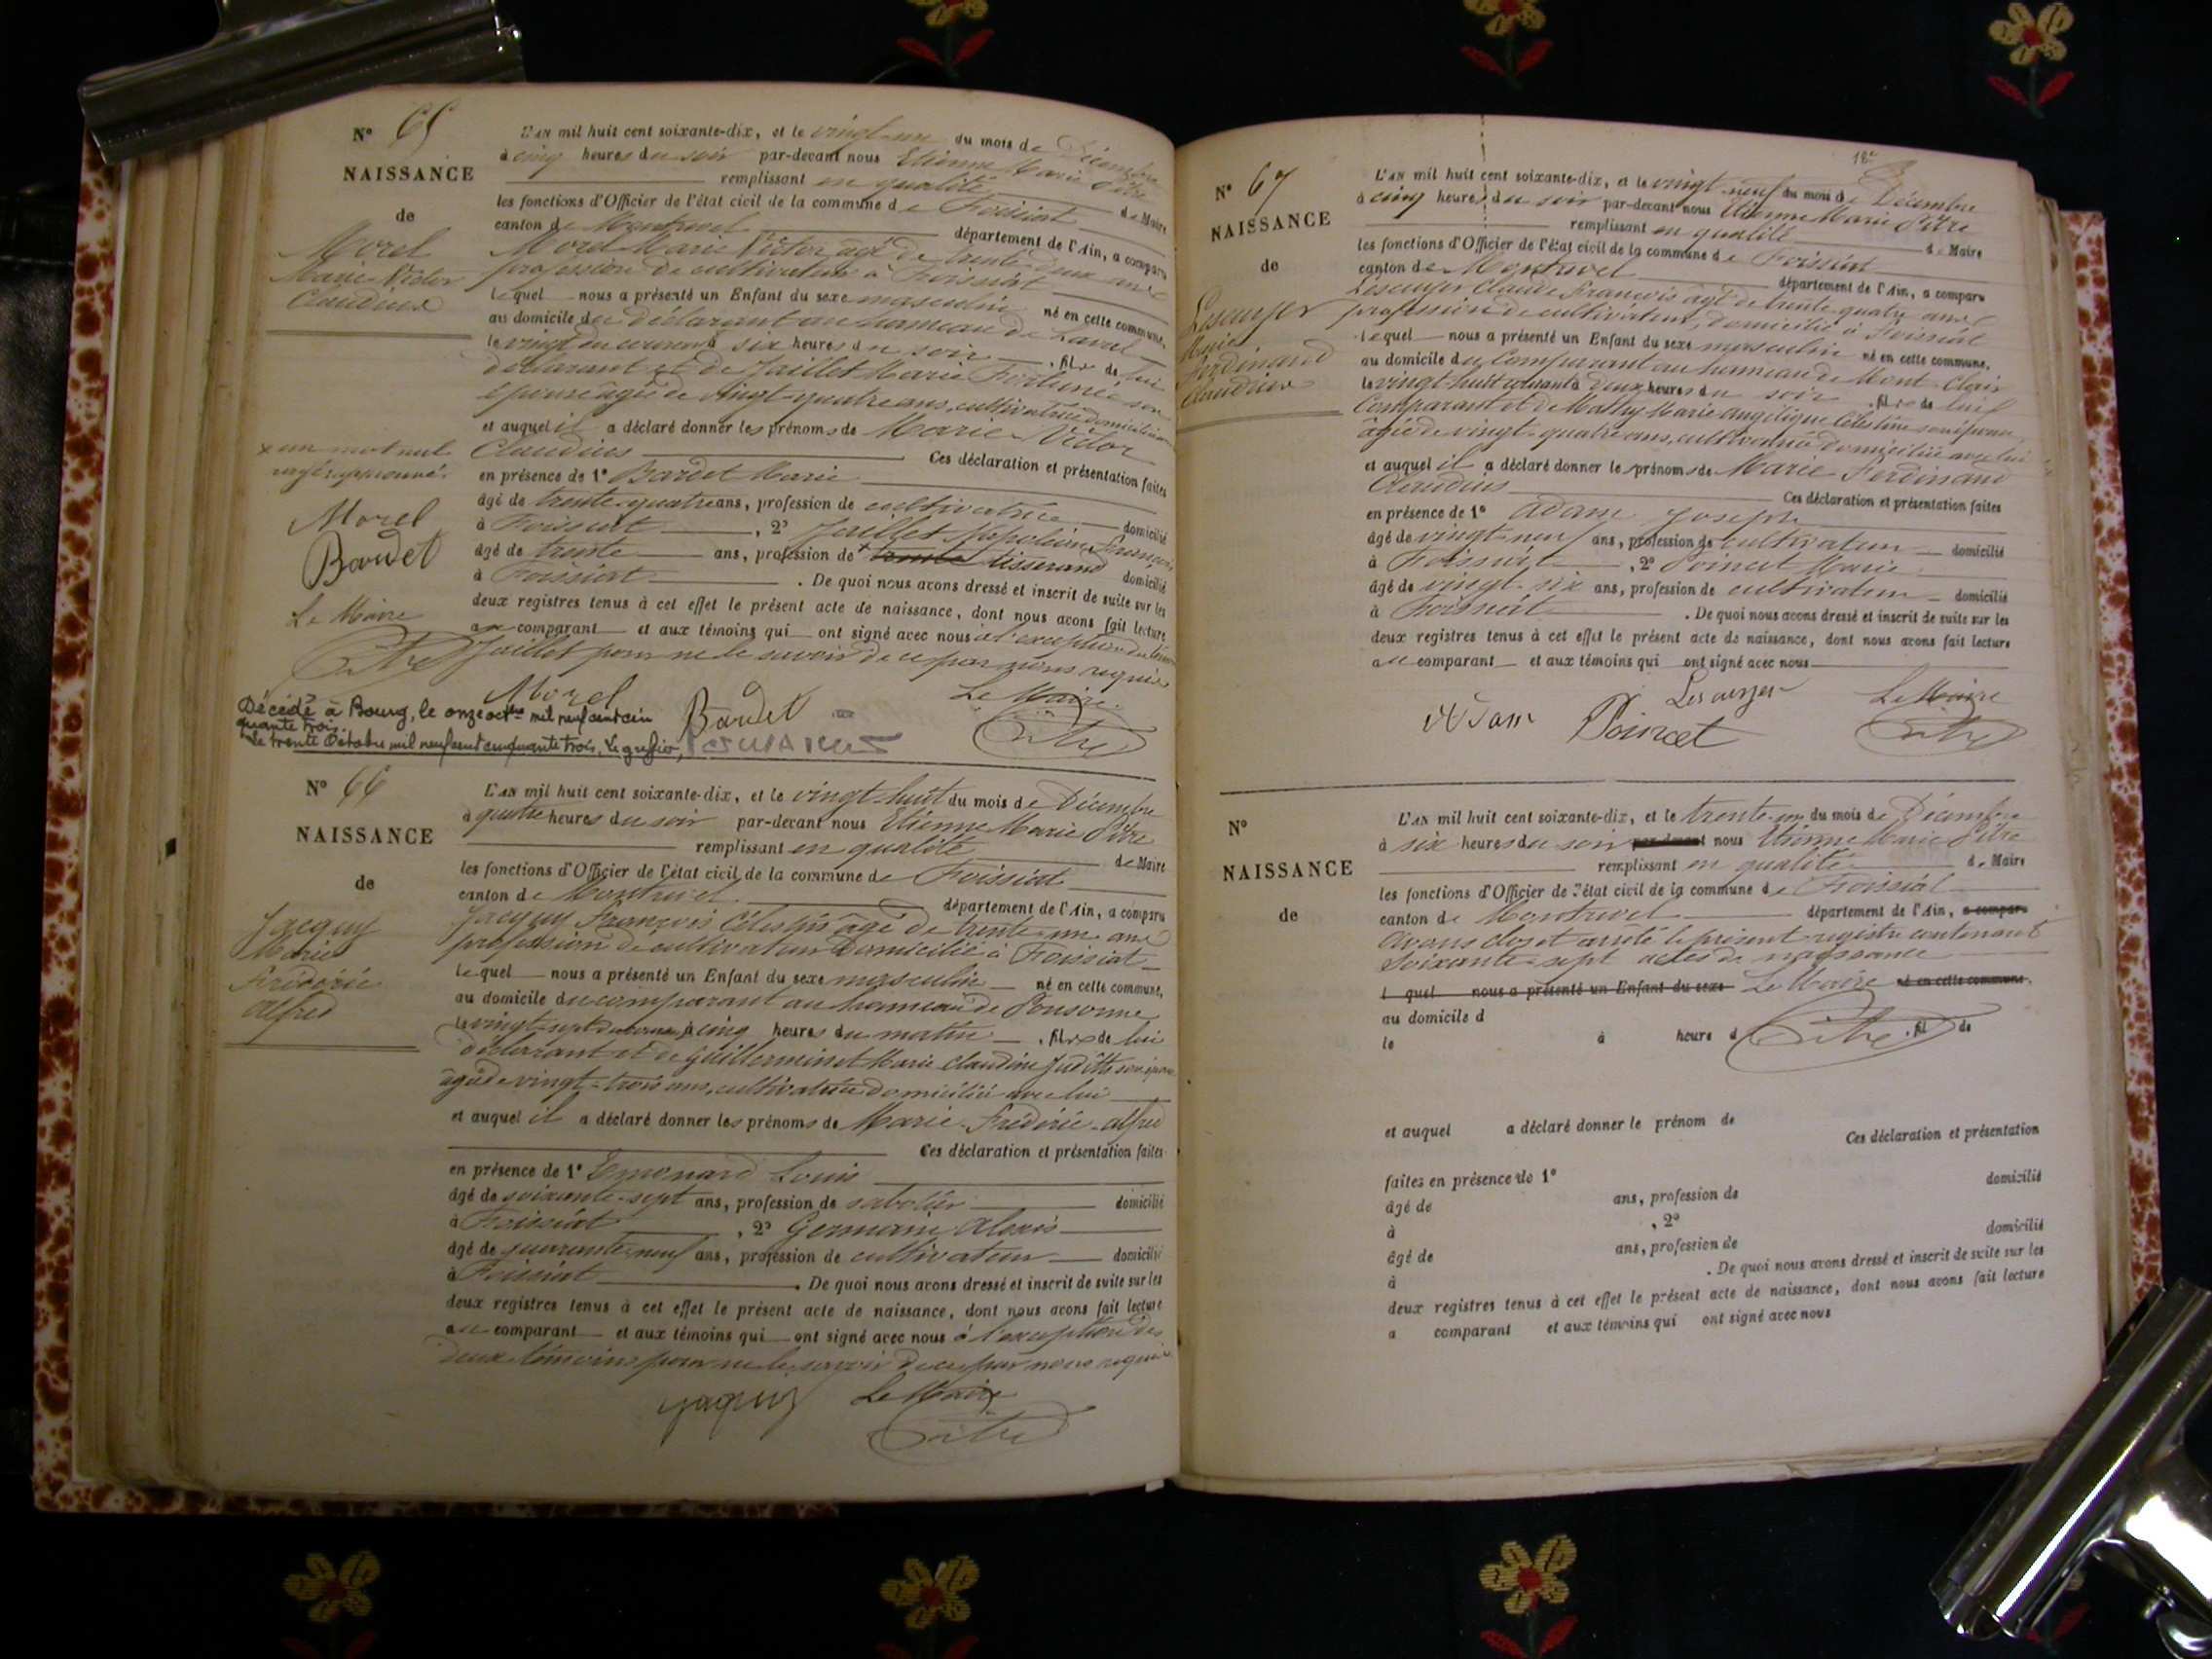 N° 65
NAISSANCE
de
Morel
Marie Victor
Claudius
L'AN mil huit cent soixante-dix, et le vingt-un du mois de Décembre
à cinq heures du soir par-devant nous Etienne Marie Pitre
remplissant en qualité de Maire
les fonctions d'Officier de l'état civil de la commune de Foissiat
canton de Montrevel département de l'Ain, a comparu
Morel Marie Victor âgé de trente deux ans
profession de cultivateur à Foissiat
lequel nous a présenté un Enfant du sexe masculin né en cette commune,
au domicile du Déclarant au hameau de Laval
le vingt du courant à six heures du soir, fils de lui
déclarant et de Jaillet Marie son
épouse âgée de vingt-quatre ans, cultivatrice
et auquel il a déclaré donner les prénoms de Marie-Victor
Claudius Ces déclaration et présentation faites
en présence de 1° Bardet Marie
âgé de trente-quatre ans, profession de domicilié
à Foissiat, 2° Jaillet Napoléon François
âgé de trente ans, profession de tisserand domicilié
à Foissiat. De quoi nous avons dressé et inscrit de suite sur les
deux registres tenus à cet effet le présent acte de naissance, dont nous avons fait lecture
au comparant et aux témoins qui ont signé avec nous à l'exception du témoin
Jaillet pour ne le savoir de ce par nous requis
x un mot nul
rayé
Morel
Bardet
Le Maire
Pitre
Morel Bardet Le Maire
Pitre
Décédé à Bourg, le onze octbre mil neuf cent cin
quante trois.
Le trente Octobre mil neuf cent cinquante trois, Le greffier,
N° 66
NAISSANCE
de
Jacquy
Marie
Frédéric
Alfred
L'AN mil huit cent soixante-dix, et le vingt-huit du mois de Décembre
à quatre heures du soir par-devant nous Etienne Marie Pitre
remplissant en qualité de Maire
les fonctions d'Officier de l'état civil de la commune de Foissiat
canton de Montrevel département de l'Ain, a comparu
Jacquy François Célestin âgé de trente-un ans
profession de cultivateur Domicilié à Foissiat
lequel nous a présenté un Enfant du sexe masculin né en cette commune,
au domicile du comparant au hameau de
le vingt-sept du courant à cinq heures du matin, fils de lui
déclarant et de Guillerminet Marie Claudine Judith son épouse
âgée de vingt-trois ans, cultivatrice domiciliée avec lui
et auquel il a déclaré donner les prénoms de Marie-Frédéric-Alfred
Ces déclaration et présentation faites
en présence de 1° Emonard Louis
âgé de soixante-sept ans, profession de sabotier domicilié
à Foissiat, 2° Germain Alexis
âgé de quarante-neuf ans, profession de cultivateur domicilié
à Foissiat. De quoi nous avons dressé et inscrit de suite sur les
deux registres tenus à cet effet le présent acte de naissance, dont nous avons fait lecture
au comparant et aux témoins qui ont signé avec nous à l'exception des
deux témoins pour ne le savoir de ce par nous requis
Le Maire
Pitre
18e
N° 67
NAISSANCE
de
Lescuyer
Marie
Ferdinand
Claudius
L'AN mil huit cent soixante-dix, et le vingt-neuf du mois de Décembre
à cinq heures du soir par-devant nous Etienne Marie Pitre
remplissant en qualité de Maire
les fonctions d'Officier de l'état civil de la commune de Foissiat
canton de Montrevel département de l'Ain, a comparu
Lescuyer Claude François âgé de trente quatre ans
profession de cultivateur, domicilié à Foissiat
lequel nous a présenté un Enfant du sexe masculin né en cette commune,
au domicile du Comparant au hameau de Mont-Clair
le vingt-huit courant à deux heures du soir, fils de lui
Comparant et de Mathy Marie Angélique Célestine son épouse
âgée de vingt-quatre ans, cultivatrice domiciliée avec lui
et auquel il a déclaré donner le prénoms de Marie Ferdinand
Claudius Ces déclaration et présentation faites
en présence de 1° Adam Joseph
âgé de vingt-neuf ans, profession de cultivateur domicilié
à Foissiat, 2° Poincet Marie
âgé de vingt-six ans, profession de cultivateur domicilié
à Foissiat. De quoi nous avons dressé et inscrit de suite sur les
deux registres tenus à cet effet le présent acte de naissance, dont nous avons fait lecture
au comparant et aux témoins qui ont signé avec nous
Adam Poincet Lescuyer Le Maire
Pitre
N°
NAISSANCE
de
L'AN mil huit cent soixante-dix, et le trente-un du mois de Décembre
à six heures du soir par-devant nous Etienne Marie Pitre
remplissant en qualité de Maire
les fonctions d'Officier de l'état civil de la commune de Foissiat
canton de Montrevel département de l'Ain, a comparu
avons clos et arrêté le présent registre contenant
soixante-sept actes de naissance
l quel nous a présenté un Enfant du sexe Le Maire né en cette commune,
au domicile d
le à heure d Pitre, fil de
et auquel a déclaré donner le prénom de
Ces déclaration et présentation
faites en présence de 1°
âgé de ans, profession de domicilié
à, 2°
âgé de ans, profession de domicilié
à. De quoi nous avons dressé et inscrit de suite sur les
deux registres tenus à cet effet le présent acte de naissance, dont nous avons fait lecture
a comparant et aux témoins qui ont signé avec nous